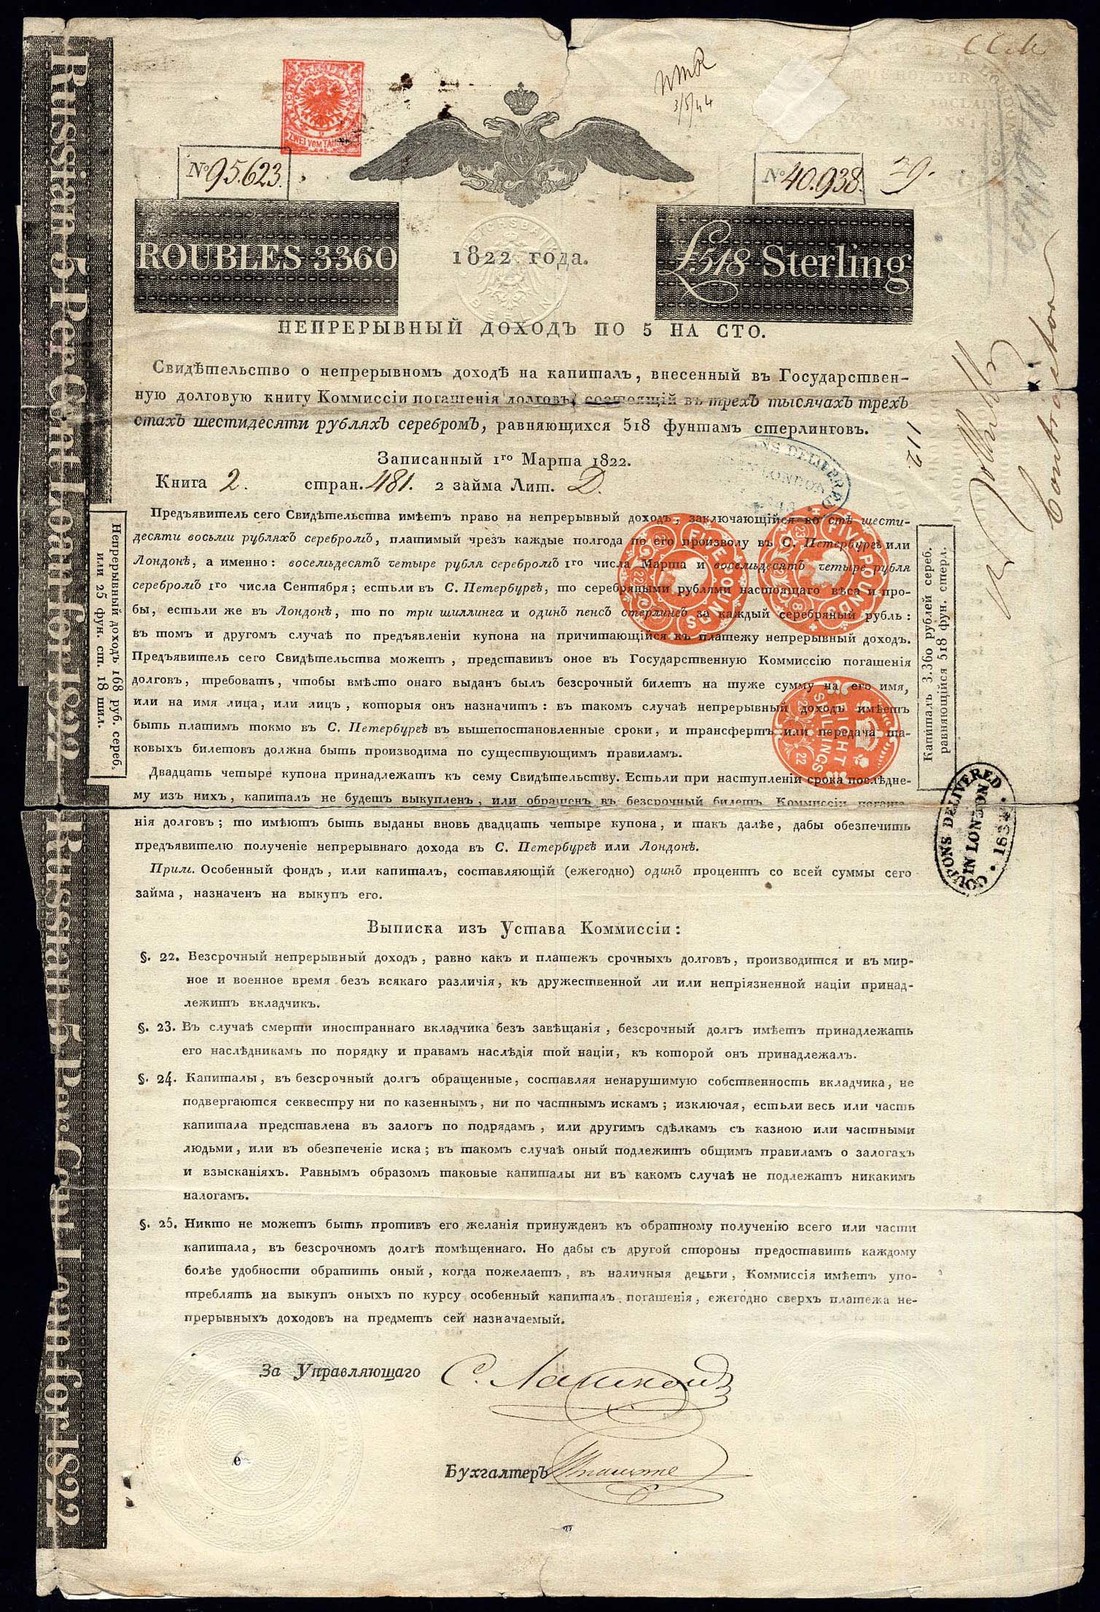 Russian 5 Per Cent Loan for 1822
Russian 5 Per Cent Loan for 1822
3/5/44
No 95.623.
No 40.938.
29.
ROUBLES 3360
1822 года.
£518 Sterling
НЕПРЕРЫВНЫЙ ДОХОДЪ ПО 5 НА СТО.
Свидѣтельство о непрерывном доходѣ на капиталъ, внесенный въ Государствен-
ную долговую книгу Коммиссіи погашенія долговъ, состоящій въ трехъ тысячахъ трех
стахъ шестидесяти рубляхъ серебромъ, равняющихся 518 фунтамъ стерлинговъ.
Записанный 1го Марта 1822.
Книга 2. стран. 481. 2 займа Лит. D.
112
Предъявитель сего Свидѣтельства имѣетъ право на непрерывный доходъ, заключающійся во стѣ шести-
десяти восьми рубляхъ серебромъ, платимый чрезъ каждые полгода по его произволу въ С. Петербургѣ или
Лондонѣ, а именно: восемьдесятъ четыре рубля серебромъ 1го числа Марта и восемьдесятъ четыре рубля
серебромъ 1го числа Сентября; естьли въ С. Петербургѣ, то серебряными рублями настоящаго вѣса и про-
бы, естьли же въ Лондонѣ, то по три шиллинга и одинъ пенсъ стерлингъ за каждый серебряный рубль:
въ томъ и другомъ случаѣ по предъявленіи купона на причитающійся къ платежу непрерывный доходъ.
Предъявитель сего Свидѣтельства можетъ, представивъ оное въ Государственную Коммиссію погашенія
долговъ, требовать, чтобы вмѣсто онаго выданъ былъ безсрочный билетъ на туже сумму на его имя,
или на имя лица, или лицъ, которыя онъ назначитъ: въ такомъ случаѣ непрерывный доходъ имѣетъ
быть платимъ токмо въ С. Петербургѣ въ вышепостановленные сроки, и трансфертъ или передача та-
ковыхъ билетовъ должна быть производима по существующимъ правиламъ.
Двадцать четыре купона принадлежатъ къ сему Свидѣтельству. Естьли при наступленіи срока послѣдне-
му изъ нихъ, капиталъ не будетъ выкупленъ, или обращенъ въ безсрочный билетъ Коммиссіи погаше-
нія долговъ; то имѣютъ быть выданы вновь двадцать четыре купона, и такъ далѣе, дабы обеспечить
предъявителю полученіе непрерывнаго дохода въ С. Петербургѣ или Лондонѣ.
Прим. Особенный фондъ, или капиталъ, составляющій (ежегодно) одинъ процентъ со всей суммы сего
займа, назначенъ на выкупъ его.
Непрерывный доходъ 168 руб. сереб.
или 25 фун. ст. 18 шил.
Капиталъ 3.360 рублей сереб.
равняющійся 518 фун. стерл.
EIGHT SHILLINGS
22
COUPONS DELIVERED
IN LONDON
1834
Выписка изъ Устава Коммиссіи:
§. 22. Безсрочный непрерывный доходъ, равно какъ и платежъ срочныхъ долговъ, производится и въ мир-
ное и военное время безъ всякаго различія, къ дружественной ли или непріязненной націи принад-
лежитъ вкладчикъ.
§. 23. Въ случаѣ смерти иностраннаго вкладчика безъ завѣщанія, безсрочный долгъ имѣетъ принадлежать
его наслѣдникамъ по порядку и правамъ наслѣдія той націи, къ которой онъ принадлежалъ.
§. 24. Капиталы, въ безсрочный долгъ обращенные, составляя ненарушимую собственность вкладчика, не
подвергаются секвестру ни по казеннымъ, ни по частнымъ искамъ; изключая, естьли весь или часть
капитала представлена въ залогъ по подрядамъ, или другимъ сдѣлкамъ съ казною или частными
людьми, или въ обезпеченіе иска; въ такомъ случаѣ оный подлежитъ общимъ правиламъ о залогахъ
и взысканіяхъ. Равнымъ образомъ таковые капиталы ни въ какомъ случаѣ не подлежатъ никакимъ
налогамъ.
§. 25. Никто не можетъ быть противъ его желанія принужденъ къ обратному полученію всего или части
капитала, въ безсрочномъ долгѣ помѣщеннаго. Но дабы съ другой стороны предоставить каждому
болѣе удобности обратить оный, когда пожелаетъ, въ наличныя деньги, Коммиссія имѣетъ упо-
треблять на выкупъ оныхъ по курсу особенный капиталъ погашенія, ежегодно сверхъ платежа не-
прерывныхъ доходовъ на предметъ сей назначаемый.
За Управляющаго
Бухгалтеръ
6
Contractor